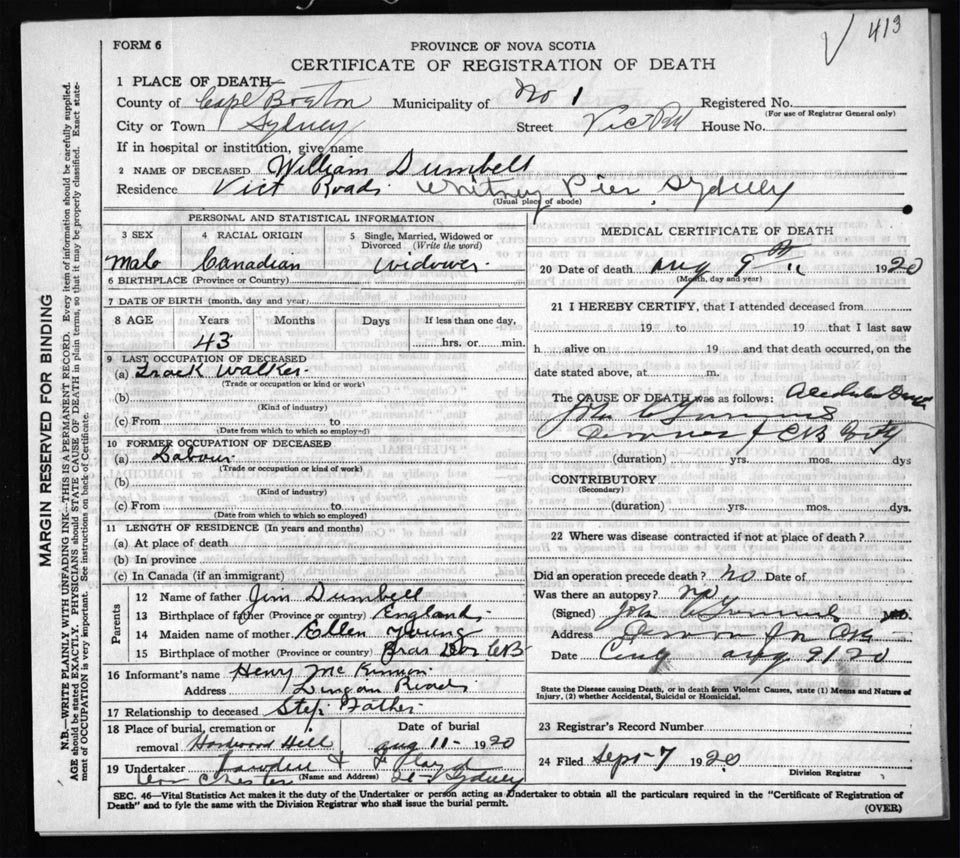 413
FORM 6
PROVINCE OF NOVA SCOTIA
CERTIFICATE OF REGISTRATION OF DEATH
1 PLACE OF DEATH
County of Cape Breton Municipality of No 1 Registered No.
(For use of Registrar General only)
City or Town Sydney Street Vic Rd House No.
If in hospital or institution, give name
2 NAME OF DECEASED William Dumbell
Residence Vict Road. Whitney Pier, Sydney
(Usual place of abode)
PERSONAL AND STATISTICAL INFORMATION
3 SEX 4 RACIAL ORIGIN 5 Single, Married, Widowed or Divorced (Write the word)
Male Canadian Widower
6 BIRTHPLACE (Province or Country)
7 DATE OF BIRTH (month, day and year)
8 AGE Years Months Days If less than one day,
43 hrs. or min.
9 LAST OCCUPATION OF DECEASED
(a) Track Walker
(Trade or occupation or kind or work)
(b)
(Kind of industry)
(c) From to
(Date from which to which so employed)
10 FORMER OCCUPATION OF DECEASED
(a) Labour
(Trade or occupation or kind of work)
(b)
(Kind of industry)
(c) From to
(Date from which to which so employed)
11 LENGTH OF RESIDENCE (In years and months)
(a) At place of death
(b) In province
(c) In Canada (if an immigrant)
Parents
12 Name of father Jim Dumbell
13 Birthplace of father (Province or country) England
14 Maiden name of mother Ellen Young
15 Birthplace of mother (Province or country) Bras Dor CB
16 Informant's name Henry McKinnon
Address Lingan Road
17 Relationship to deceased Step Father
18 Place of burial, cremation or removal Hardwood Hill Date of burial Aug 11 - 1920
19 Undertaker
(Name and Address) Sydney
MEDICAL CERTIFICATE OF DEATH
20 Date of death Aug 9th 1920
(Month, day and year)
21 I HEREBY CERTIFY, that I attended deceased from
19 to 19 that I last saw
h alive on 19 and that death occurred, on the
date stated above, at m.
The CAUSE OF DEATH was as follows:
(duration) yrs. mos. dys
CONTRIBUTORY
(Secondary)
(duration) yrs. mos. dys.
22 Where was disease contracted if not at place of death?
Did an operation precede death? no Date of
Was there an autopsy? no
(Signed) John M.D.
Address
Date Aug 9/20
State the Disease causing Death, or in death from Violent Causes, state (1) Means and Nature of
Injury, (2) whether Accidental, Suicidal or Homicidal.
23 Registrar's Record Number
24 Filed Sept-7 1920
Division Registrar
SEC. 46—Vital Statistics Act makes it the duty of the Undertaker or person acting as Undertaker to obtain all the particulars required in the "Certificate of Registration of
Death" and to fyle the same with the Division Registrar who shall issue the burial permit.
(OVER)
MARGIN RESERVED FOR BINDING
N.B.—WRITE PLAINLY WITH UNFADING INK—THIS IS A PERMANENT RECORD. Every item of information should be carefully supplied.
AGE should be stated EXACTLY. PHYSICIANS should STATE CAUSE OF DEATH in plain terms, so that it may be properly classified. Exact state-
ment of OCCUPATION is very important. See instructions on back of Certificate.